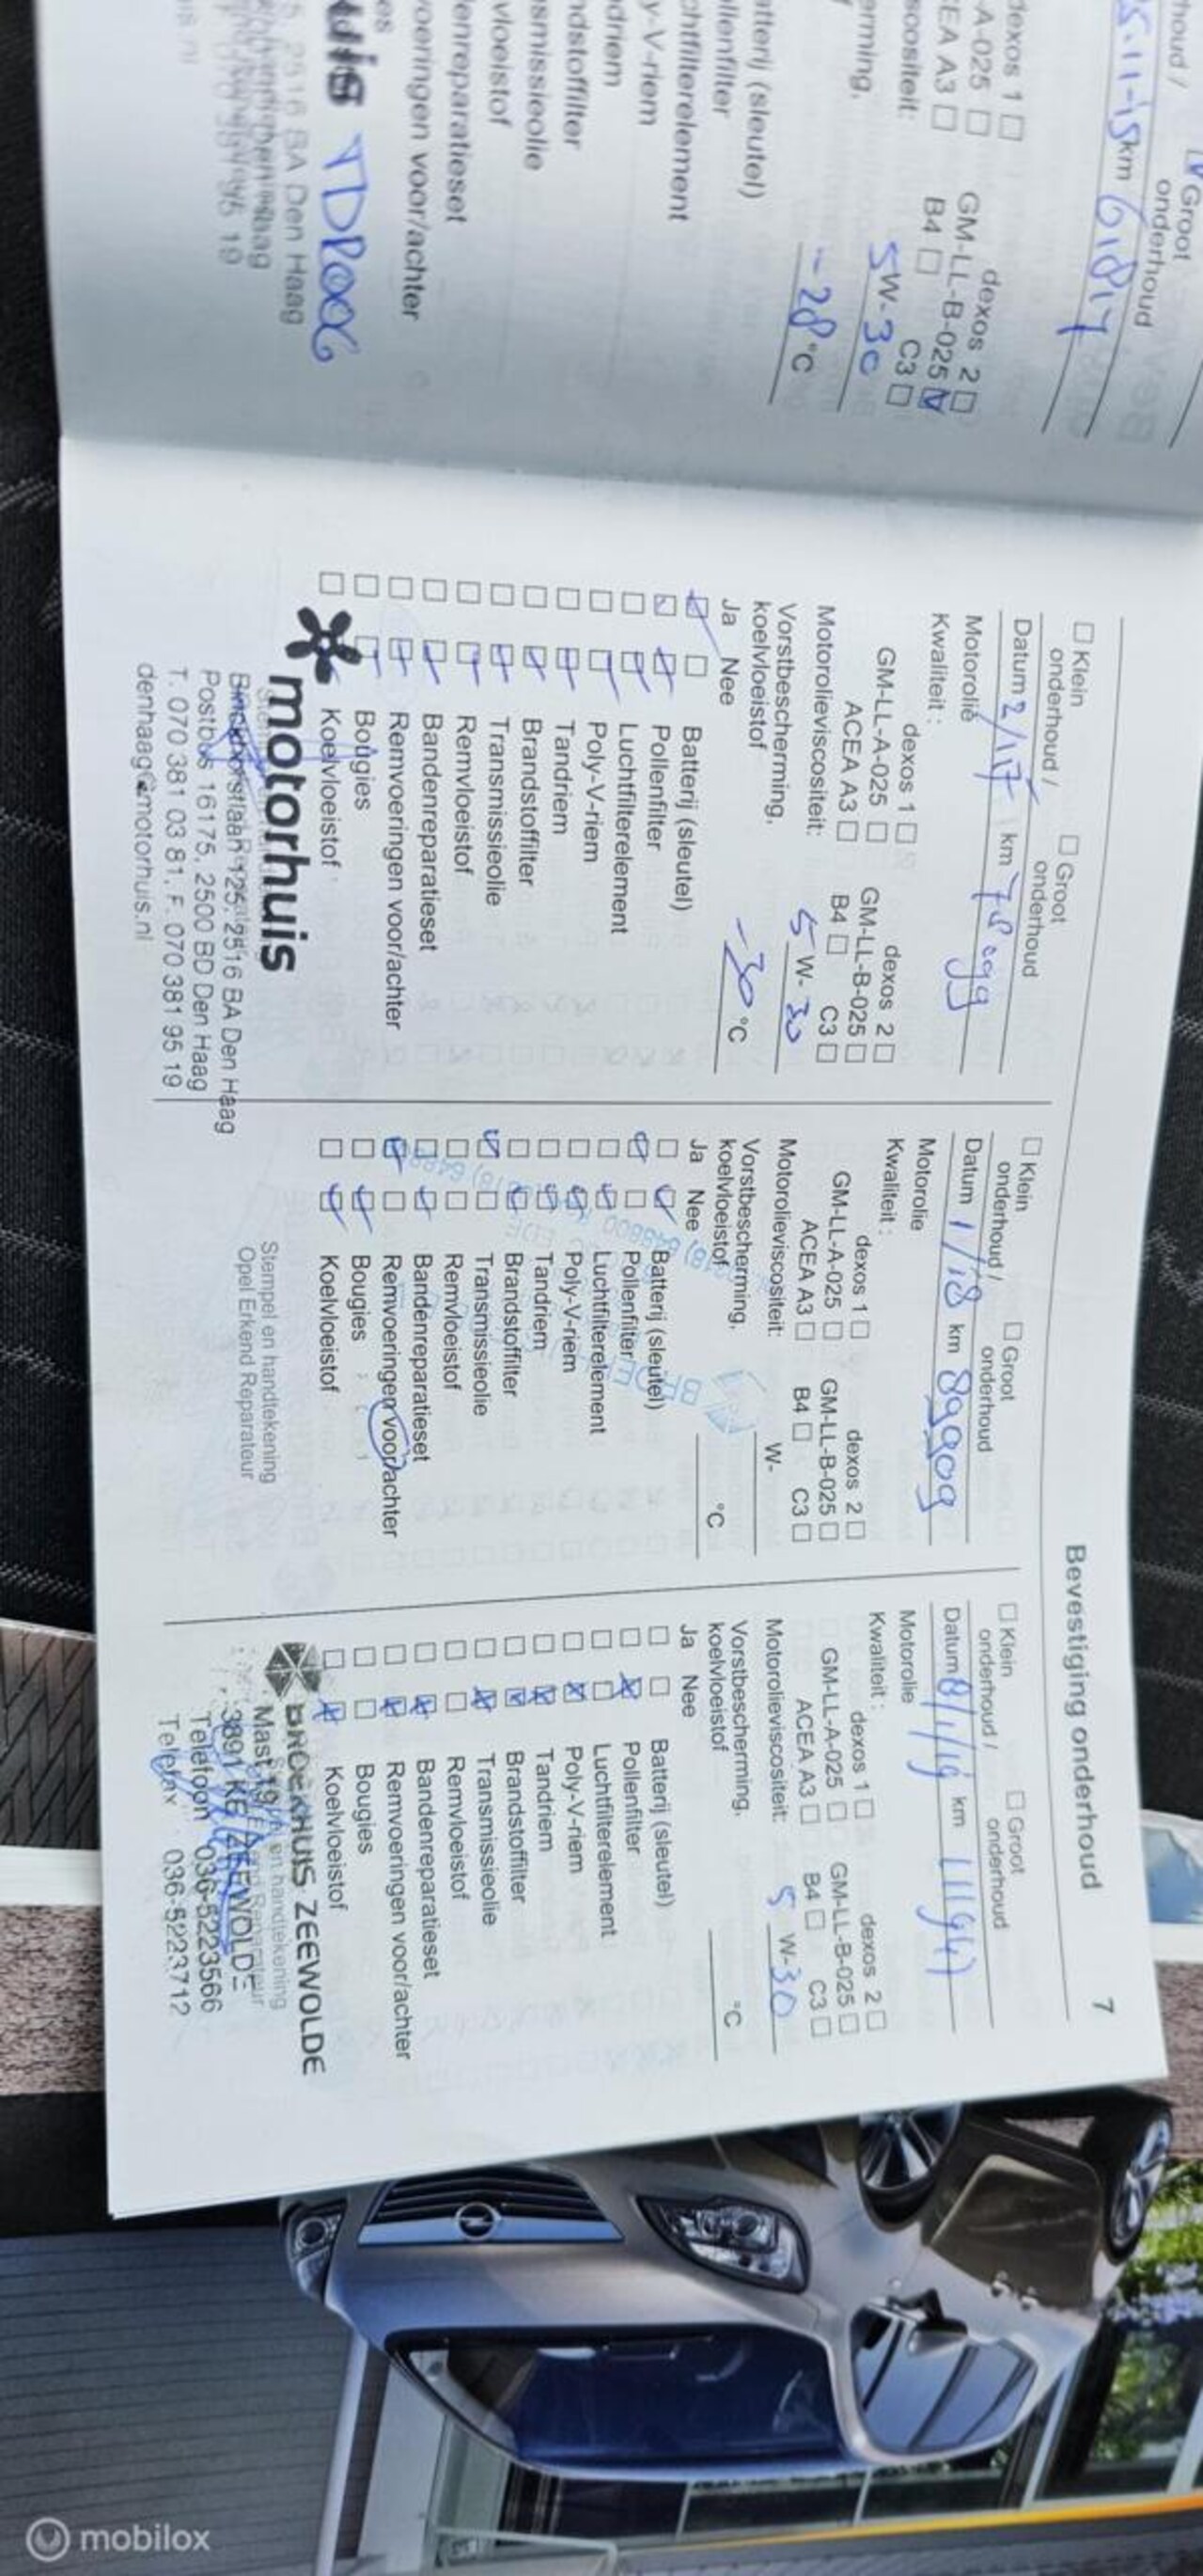 Groot
onderhoud
km 61817
dexos 1 dexos 2
A-025 GM-LL-B-025
EA A3 B4 C3
5W-30
-28 °C
chtfilterelement
y-V-riem
driem
ndstoffilter
smissieolie
vloeistof
enreparatieset
voeringen voor/achter
2516 BA Den Haag
Bevestiging onderhoud 7
Klein onderhoud / Groot onderhoud
Datum 2/17 km 78099
Motorolie
Kwaliteit :
dexos 1 dexos 2
GM-LL-A-025 GM-LL-B-025
ACEA A3 B4 C3
Motorolieviscositeit: 5 W-30
Vorstbescherming,
koelvloeistof -30 °C
Ja Nee
Batterij (sleutel)
Pollenfilter
Luchtfilterelement
Poly-V-riem
Tandriem
Brandstoffilter
Transmissieolie
Remvloeistof
Bandenreparatieset
Remvoeringen voor/achter
Bougies
Koelvloeistof
motorhuis
Binckhorstlaan 125, 2516 BA Den Haag
Postbus 16175, 2500 BD Den Haag
T. 070 381 03 81, F. 070 381 95 19
denhaag@motorhuis.nl
Klein onderhoud / Groot onderhoud
Datum 1/18 km 89909
Motorolie
Kwaliteit :
dexos 1 dexos 2
GM-LL-A-025 GM-LL-B-025
ACEA A3 B4 C3
Motorolieviscositeit: W-
Vorstbescherming,
koelvloeistof °C
Ja Nee
Batterij (sleutel)
Pollenfilter
Luchtfilterelement
Poly-V-riem
Tandriem
Brandstoffilter
Transmissieolie
Remvloeistof
Bandenreparatieset
Remvoeringen voor/achter
Bougies
Koelvloeistof
Stempel en handtekening
Opel Erkend Reparateur
Klein onderhoud / Groot onderhoud
Datum 8/1/19 km 111941
Motorolie
Kwaliteit :
dexos 1 dexos 2
GM-LL-A-025 GM-LL-B-025
ACEA A3 B4 C3
Motorolieviscositeit: 5 W-30
Vorstbescherming,
koelvloeistof °C
Ja Nee
Batterij (sleutel)
Pollenfilter
Luchtfilterelement
Poly-V-riem
Tandriem
Brandstoffilter
Transmissieolie
Remvloeistof
Bandenreparatieset
Remvoeringen voor/achter
Bougies
Koelvloeistof
BROEKHUIS ZEEWOLDE
Mast 19
3891 KE ZEEWOLDE
Telefoon 036-5223566
Telefax 036-5223712
mobilox